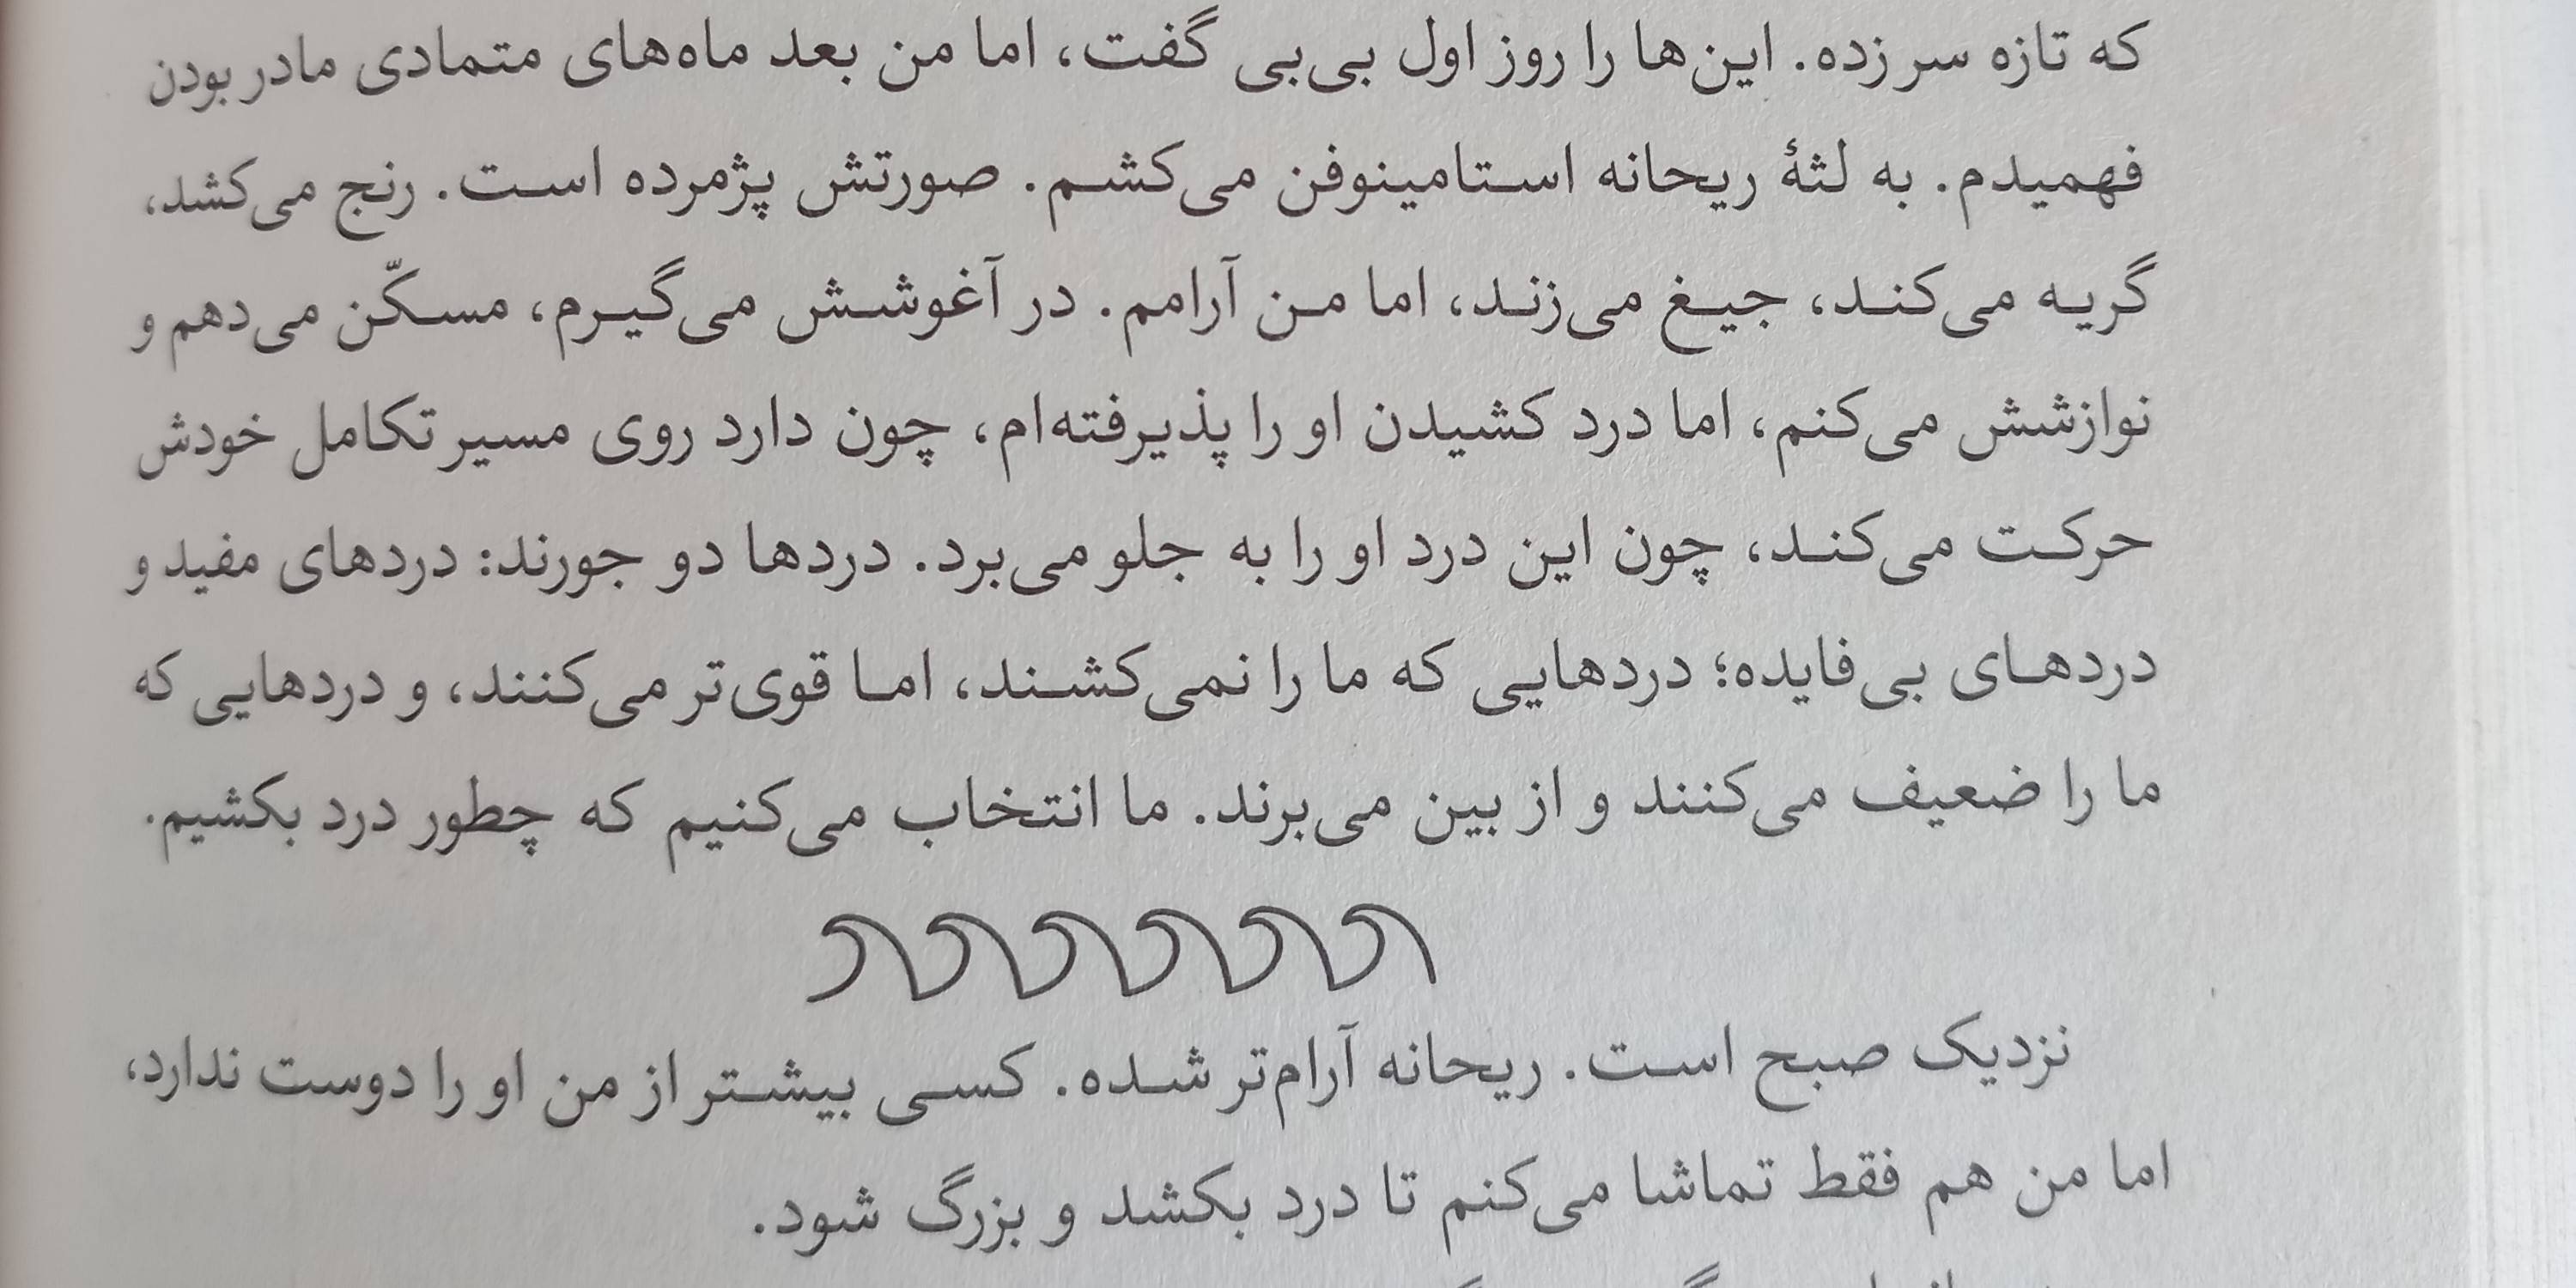 که تازه سر زده. این‌ها را روز اول بی‌بی گفت، اما من بعد ماه‌های متمادی مادر بودن
فهمیدم. به لثهٔ ریحانه استامینوفن می‌کشم. صورتش پژمرده است. رنج می‌کشد،
گریه می‌کند، جیغ می‌زند، اما من آرامم. در آغوشش می‌گیرم، مسکّن می‌دهم و
نوازشش می‌کنم، اما درد کشیدن او را پذیرفته‌ام، چون دارد روی مسیر تکامل خودش
حرکت می‌کند، چون این درد او را به جلو می‌برد. دردها دو جورند: دردهای مفید و
دردهای بی‌فایده؛ دردهایی که ما را نمی‌کشند، اما قوی‌تر می‌کنند، و دردهایی که
ما را ضعیف می‌کنند و از بین می‌برند. ما انتخاب می‌کنیم که چطور درد بکشیم.
نزدیک صبح است. ریحانه آرام‌تر شده. کسی بیشتر از من او را دوست ندارد،
اما من هم فقط تماشا می‌کنم تا درد بکشد و بزرگ شود.